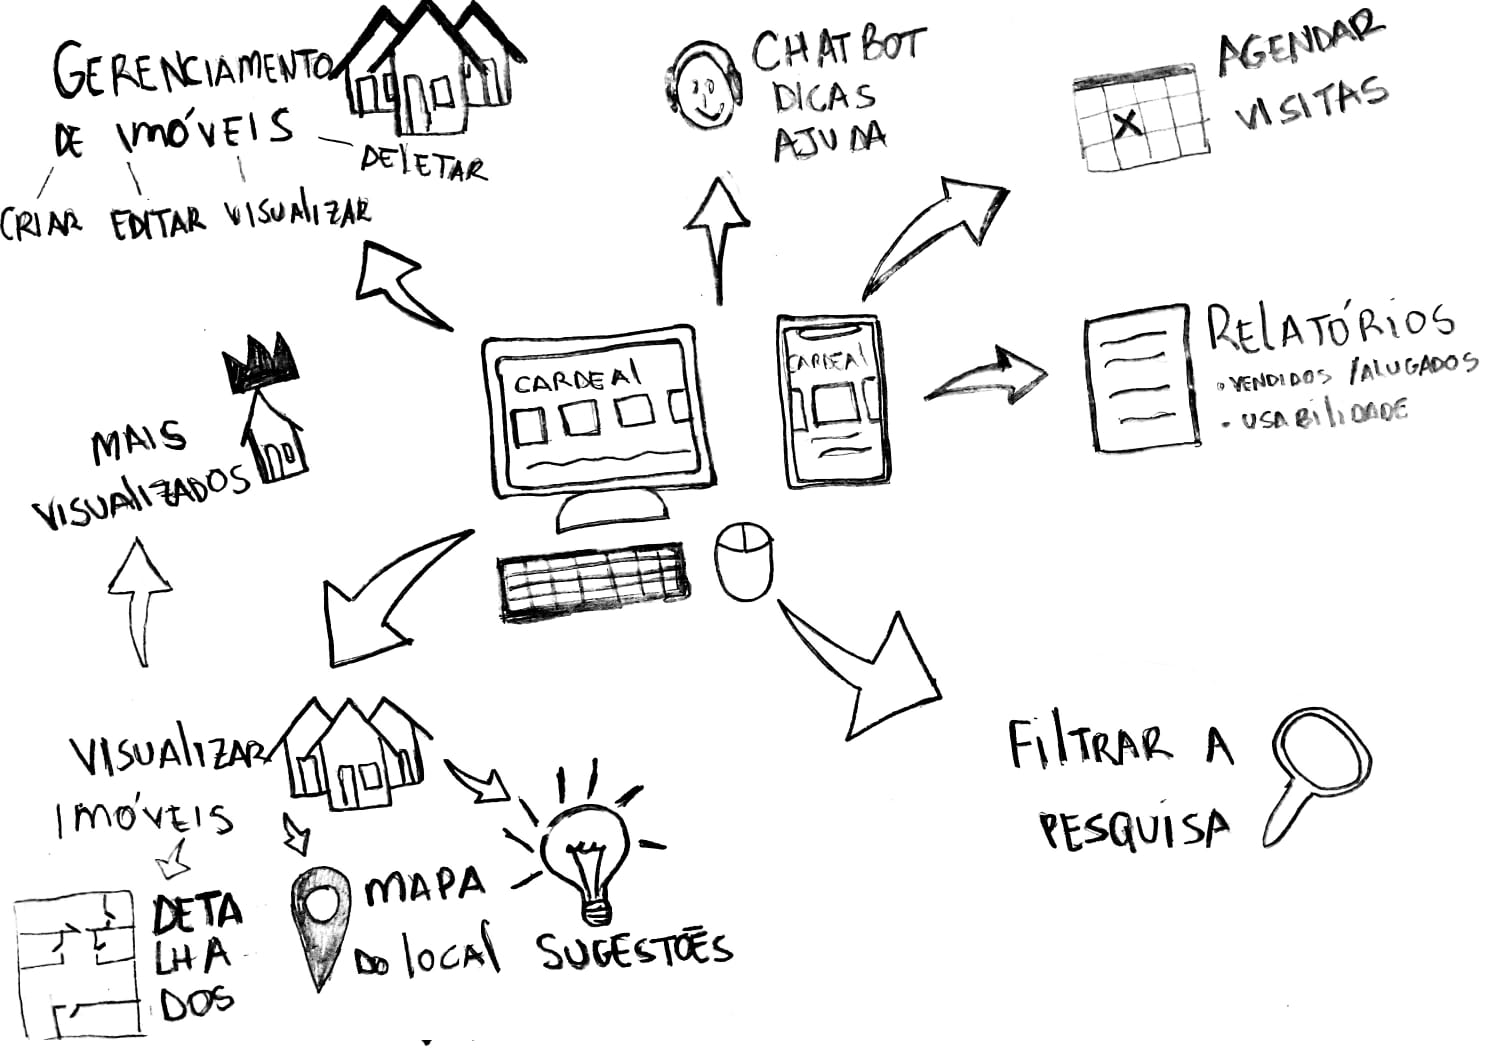 GERENCIAMENTO
DE IMÓVEIS
DELETAR
CRIAR EDITAR VISUALIZAR
CHATBOT
DICAS
AJUDA
AGENDAR
VISITAS
CARDEAL
CARDEAL
RELATÓRIOS
• VENDIDOS / ALUGADOS
• USABILIDADE
MAIS
VISUALIZADOS
VISUALIZAR
IMÓVEIS
DETA
LHA
DOS
MAPA
DO LOCAL
SUGESTÕES
FILTRAR A
PESQUISA